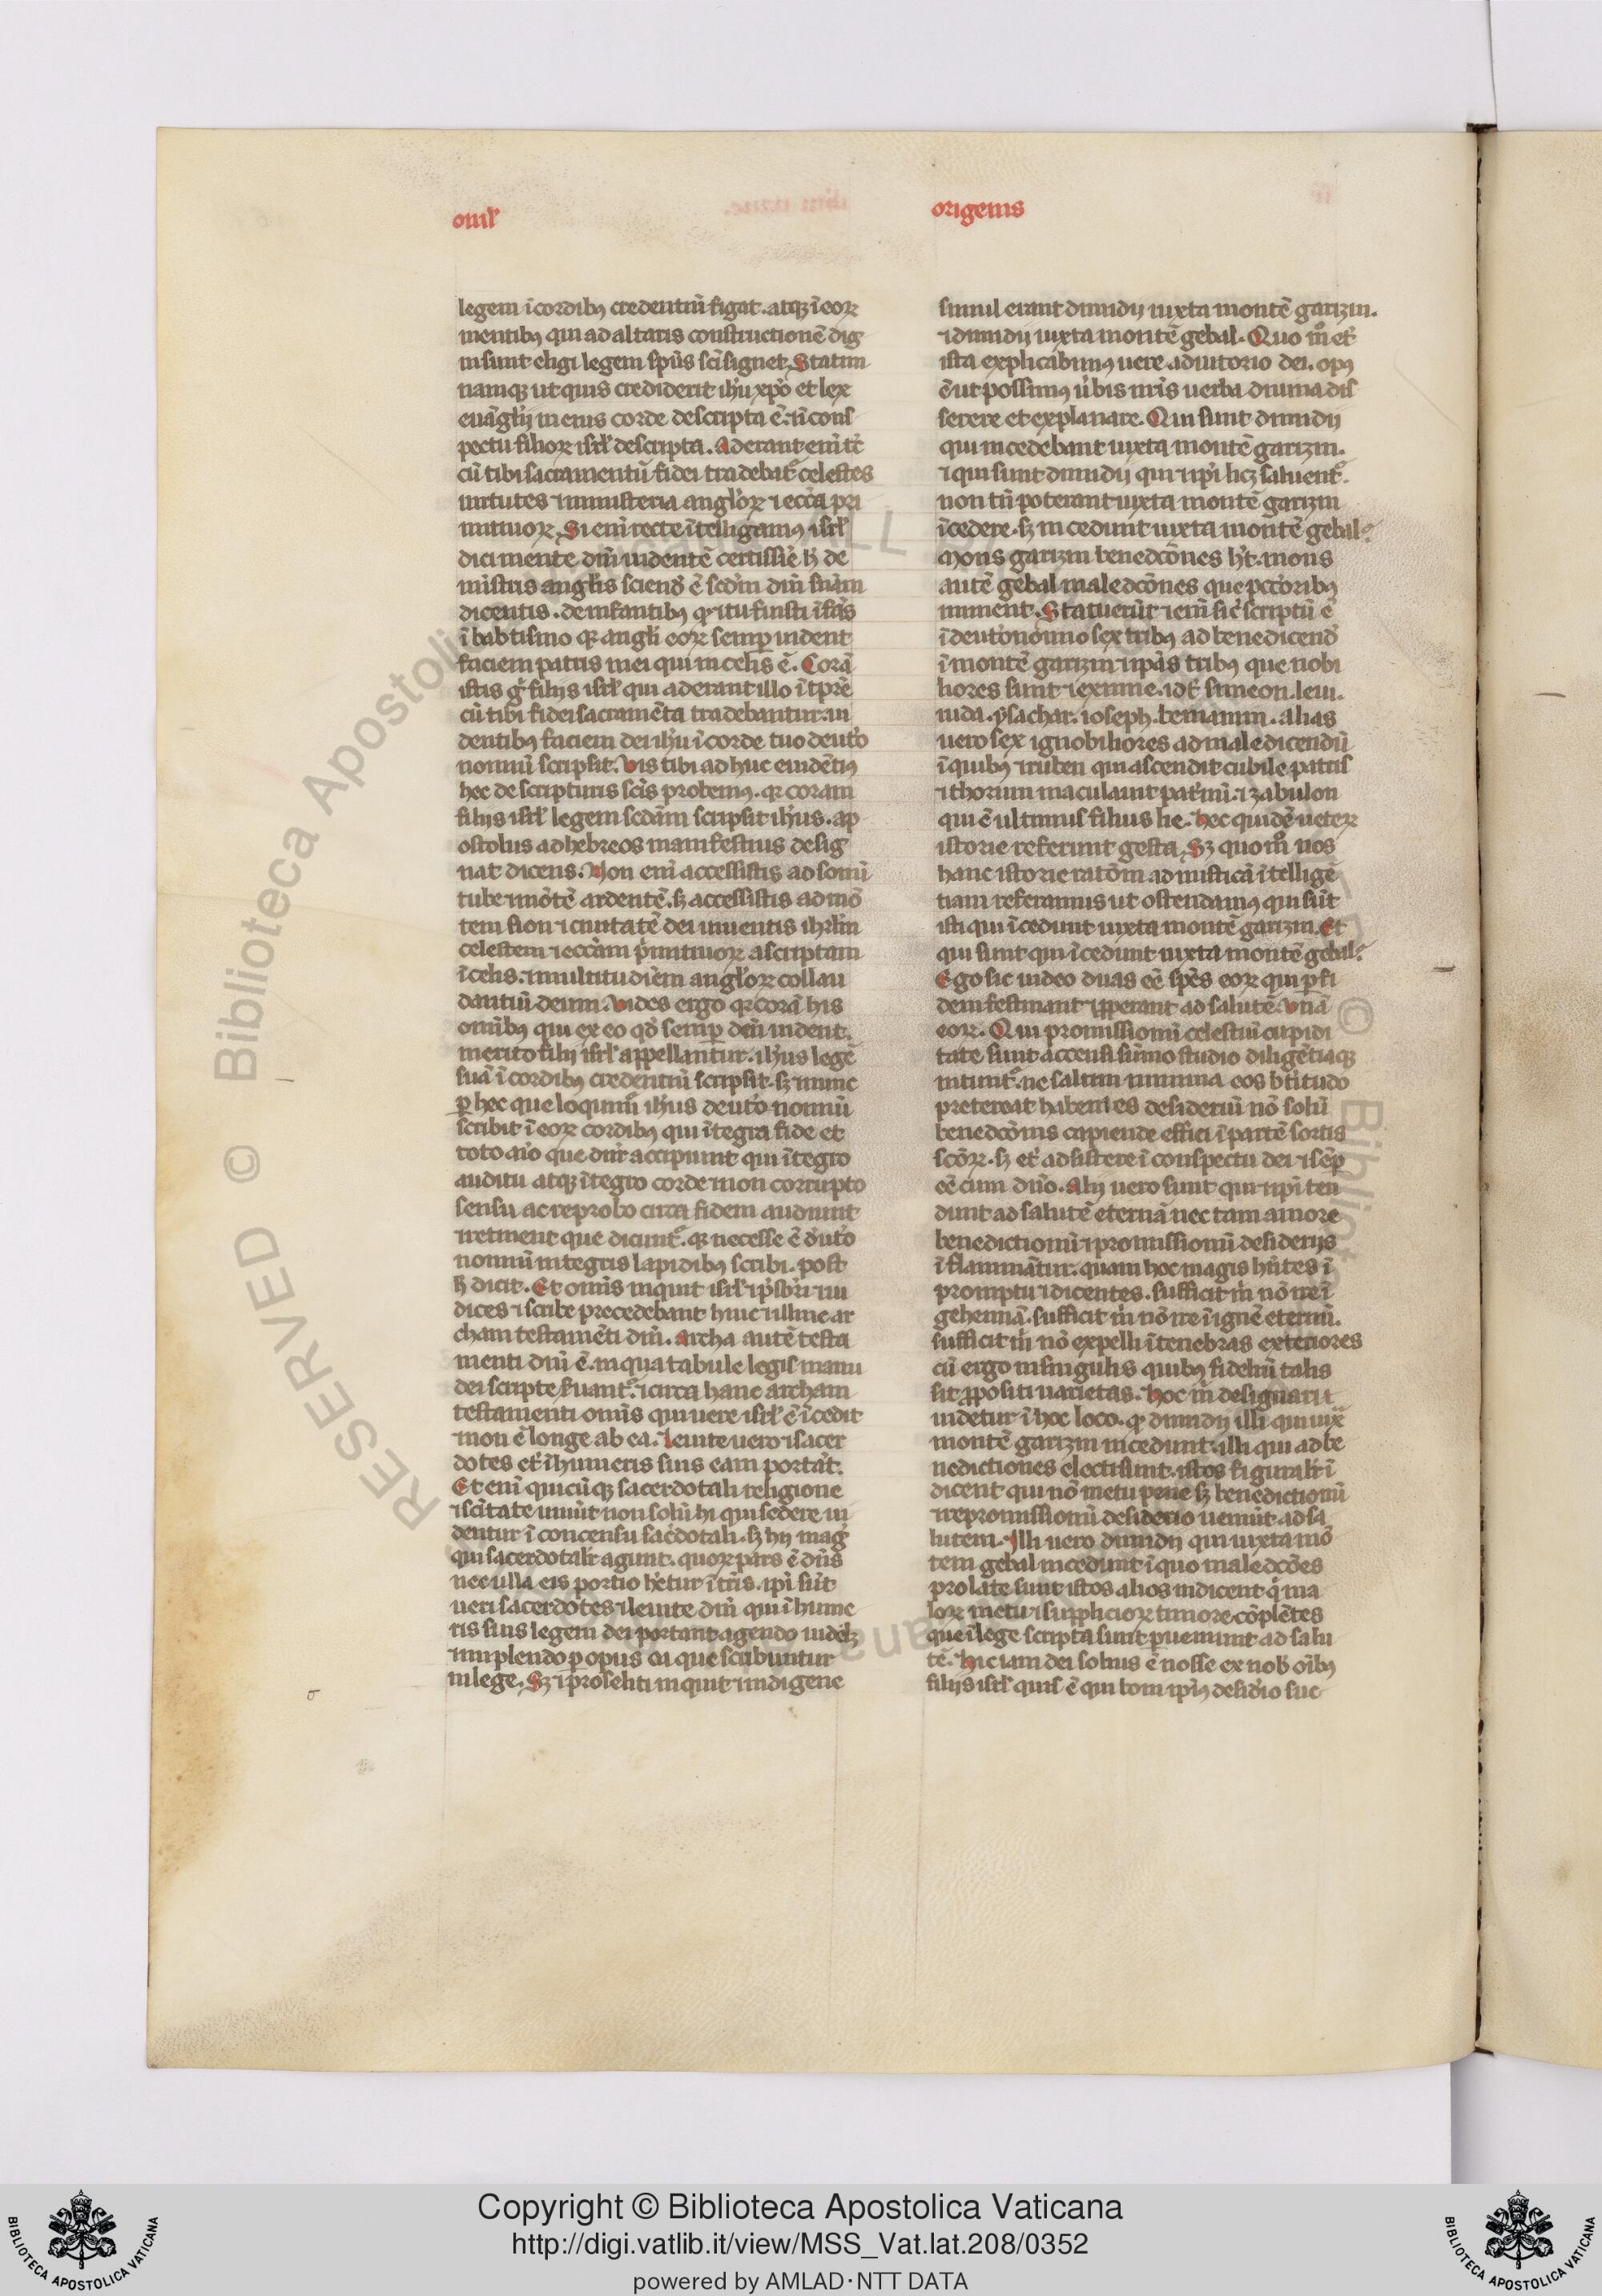 omĩƚ
origenis
legem ĩ cordibꝰ credentiũ figat. atqꝫ ĩ eoꝝ
mentibꝰ qui ad altaris constructionẽ dig
ni sunt eligi legem sp̃us sc̃i signet. Statim
namqꝫ ut quis crediderit ih̃u xp̃o et lex
euãglij in eius corde descripta ẽ. ⁊ ĩ cons
pectu filioꝝ isrƚ descripta. Aderant eni᷑ tc̃
cũ tibi sacramentũ fidei tradebat᷑ celestes
uirtutes ⁊ ministeria angƚoꝝ ⁊ ecc̃a pri
mitiuoꝝ. Si eni᷑ recte ĩtelligamꝰ isrƚ
dici mente dm̃ uidentẽ certissi᷑e ħ de
ministris angƚis sciend᷑ ẽ scd᷑m dn̄i sn̄iam
dicentis. de infantibꝰ
ĩ babtismo qꝛ angƚi eoꝝ semꝑ uident
faciem patris mei qui in celis ẽ. Corã
istis gͦ filijs isrƚ qui aderant illo ĩ tp̃re
cũ tibi fidei sacramẽta tradebantur. ui
dentibꝰ faciem dei ih̃u ĩ corde tuo deut᷑o
nomiũ scripsit. Vis tibi ad huc euidẽtiꝰ
hec de scripturis sc̃is probemꝰ. qꝛ coram
filijs isrƚ legem scd᷑am scripsit ih̃us. ap
ostolus ad hebreos manifestius desig
nat dicens. Non eni᷑ accessistis ad sonũ
tube ⁊ mõtẽ ardentẽ. sꝫ accessistis ad mõ
tem sion ⁊ ciuitatẽ dei uiuentis ih̃rƚm
celestem ⁊ ecc̃am p᷑mitiuoꝝ ascriptam
ĩ celis. ⁊ multitudiẽm angƚoꝝ collau
dantiũ deum. Vides ergo qꝛ corã his
omĩbꝰ qui ex eo qd᷑ semꝑ deũ uident.
merito filij isrƚ appellantur. ih̃us legẽ
suã ĩ cordibꝰ credentiũ scripsit. sꝫ nunc
ꝑ hec que loquim᷑ ih̃us deut᷑o nomiũ
scribit ĩ eoꝝ cordibꝰ qui ĩtegra fide et
toto aĩo que dn̄r accipiunt qui ĩtegro
auditu atqꝫ ĩtegro corde ⁊ non corrupto
sensu ac reprobo circa fidem audiunt
⁊ retinent que dicunt᷑. qꝛ necesse ẽ deut᷑o
nomiũ integris lapidibꝰ scribi. post
ħ dicit. Et omĩs inquit isrƚ ⁊ p̃sb᷑ri ⁊ iu
dices ⁊ scribe precedebant hinc ⁊ illinc ar
cham testamẽti dm̃. Archa autẽ testa
menti dn̄i ẽ. in qua tabule legis manu
dei scripte ẽuant᷑. ⁊ circa hanc archam
testamenti omĩs qui uere isrƚ ẽ ĩcedit
⁊ non ẽ longe ab ea. Leuite uero ⁊ sacer
dotes et᷑ ĩ humeris suis eam portãt.
Et eni᷑ quicũqꝫ sacerdotali religione
⁊ sc̃itate uiuũt non solũ hi qui sedere ui
dentur ĩ concensu sac᷑dotali. sꝫ hij mag᷑
qui sacerdotalir agunt. quoꝝ pars ẽ dn̄s
nec ulla eis portio h᷑etur ĩ tr̃is. ip̃i sũt
ueri sacerdotes ⁊ leuite dn̄i qui ĩ hume
ris suis legem dei portant agendo uidelꝫ
⁊ implendo ꝑ opus ea que scribuntur
in lege. Sꝫ ⁊ proseliti inquit ⁊ indigene
simul erant dimidij iuxta montẽ garizin.
⁊ dimidij iuxta montẽ gebal. Quo m̊ et᷑
ista explicabimꝰ uere adiutorio dei. opꝰ
ẽ ut possimꝰ u᷑bis nr̃is uerba diuina dis
serere et explanare. Qui sunt dimidij
qui incedebant iuxta montẽ garizin.
⁊ qui sunt dimidij qui ⁊ ip̃i licꝫ saluent᷑.
non tñ poterant iuxta montẽ garizin
ĩcedere. sꝫ incedunt iuxta montẽ gebal?
Mons garizin benedcõnes h᷑t. mons
autẽ gebal maledcõnes que pctõribꝰ
iminent. Statuerũt ⁊ eni᷑ sic᷑ scriptũ ẽ
ĩ deut᷑onomio sex tribꝰ ad benedicend᷑
ĩ montẽ garizin ⁊ ip̃as tribꝰ que nobi
liores sunt ⁊ exime. id ẽ simeon. leui.
iuda. ysachar. ioseph. beniamin. alias
uero sex ignobiliores ad maledicendũ
ĩ quibꝰ ⁊ ruben qui ascendit cubile patris
⁊ thorum maculauit pat᷑nũ. ⁊ zabulon
qui ẽ ultimus filius lie. hec quidẽ ueteꝝ
istorie referunt gesta. Sꝫ quom̊ nos
hanc istorie ratõm ad misticã ĩtelligẽ
tiam referamus ut ostendamꝰ qui sũt
isti qui ĩcedunt iuxta montẽ garizin. Et
qui sunt qui ĩcedunt iuxta montẽ gebal?
Ego sic uideo duas eẽ sp̃es eoꝝ qui ꝑ fi
dem festinant ⁊ ꝓperant ad salutẽ. Vnã
eoꝝ. Qui promissionũ celestiũ cupidi
tate sunt accensi sũmo studio diligẽtiaqꝫ
nitunt᷑. ne saltim minima eos bt̃itudo
pretereat habentes desideriũ nõ solũ
benedcõnis capiende effici ĩ partẽ sortis
sc̃oꝝ. sꝫ et᷑ adsistere ĩ conspectu dei ⁊ sẽꝑ
eẽ cum dn̄o. Alij uero sunt qui ⁊ ip̃i ten
dunt ad salutẽ eternã nec tam amore
benedictionũ ⁊ promissionũ desiderijs
ĩflammãtur. quam hoc magis h᷑ntes ĩ
promptu ⁊ dicentes. sufficit m᷑ nõ ire ĩ
gehennã. sufficit m᷑ nõ ire ĩ ignẽ eternũ.
sufficit m᷑ nõ expelli ĩ tenebras exteriores
cũ ergo in singulis quibꝰ fideliũ talis
sit ꝓpositi uarietas. hoc m᷑ designari
uidetur ĩ hoc loco. qꝛ dimidij illi qui iux̃
montẽ garizin incedunt. illi qui ad be
nedictiones electi sunt. istos figuralir ĩ
dicent qui nõ metu pene sꝫ benedictionũ
⁊ repromissionũ desiderio ueniũt ad sa
lutem. Illi uero dimidij qui iuxta mõ
tem gebal incedunt ĩ quo maledcões
prolate sunt istos alios indicent q᷑ ma
loꝝ metu ⁊ suppliciorꝝ timore cõplẽtes
que ĩ lege scripta sunt ꝑueniunt ad salu
tẽ. hic iam dei solius ẽ nosse ex nob᷑ oĩbꝰ
filijs isrƚ quis ẽ qui boni ip̃iꝰ desid᷑io suc
RESERVED © Biblioteca Apostoli
ALL
© Bibliote
Copyright © Biblioteca Apostolica Vaticana
http://digi.vatlib.it/view/MSS_Vat.lat.208/0352
powered by AMLAD·NTT DATA
BIBLIOTECA APOSTOLICA VATICANA
BIBLIOTECA APOSTOLICA VATICANA